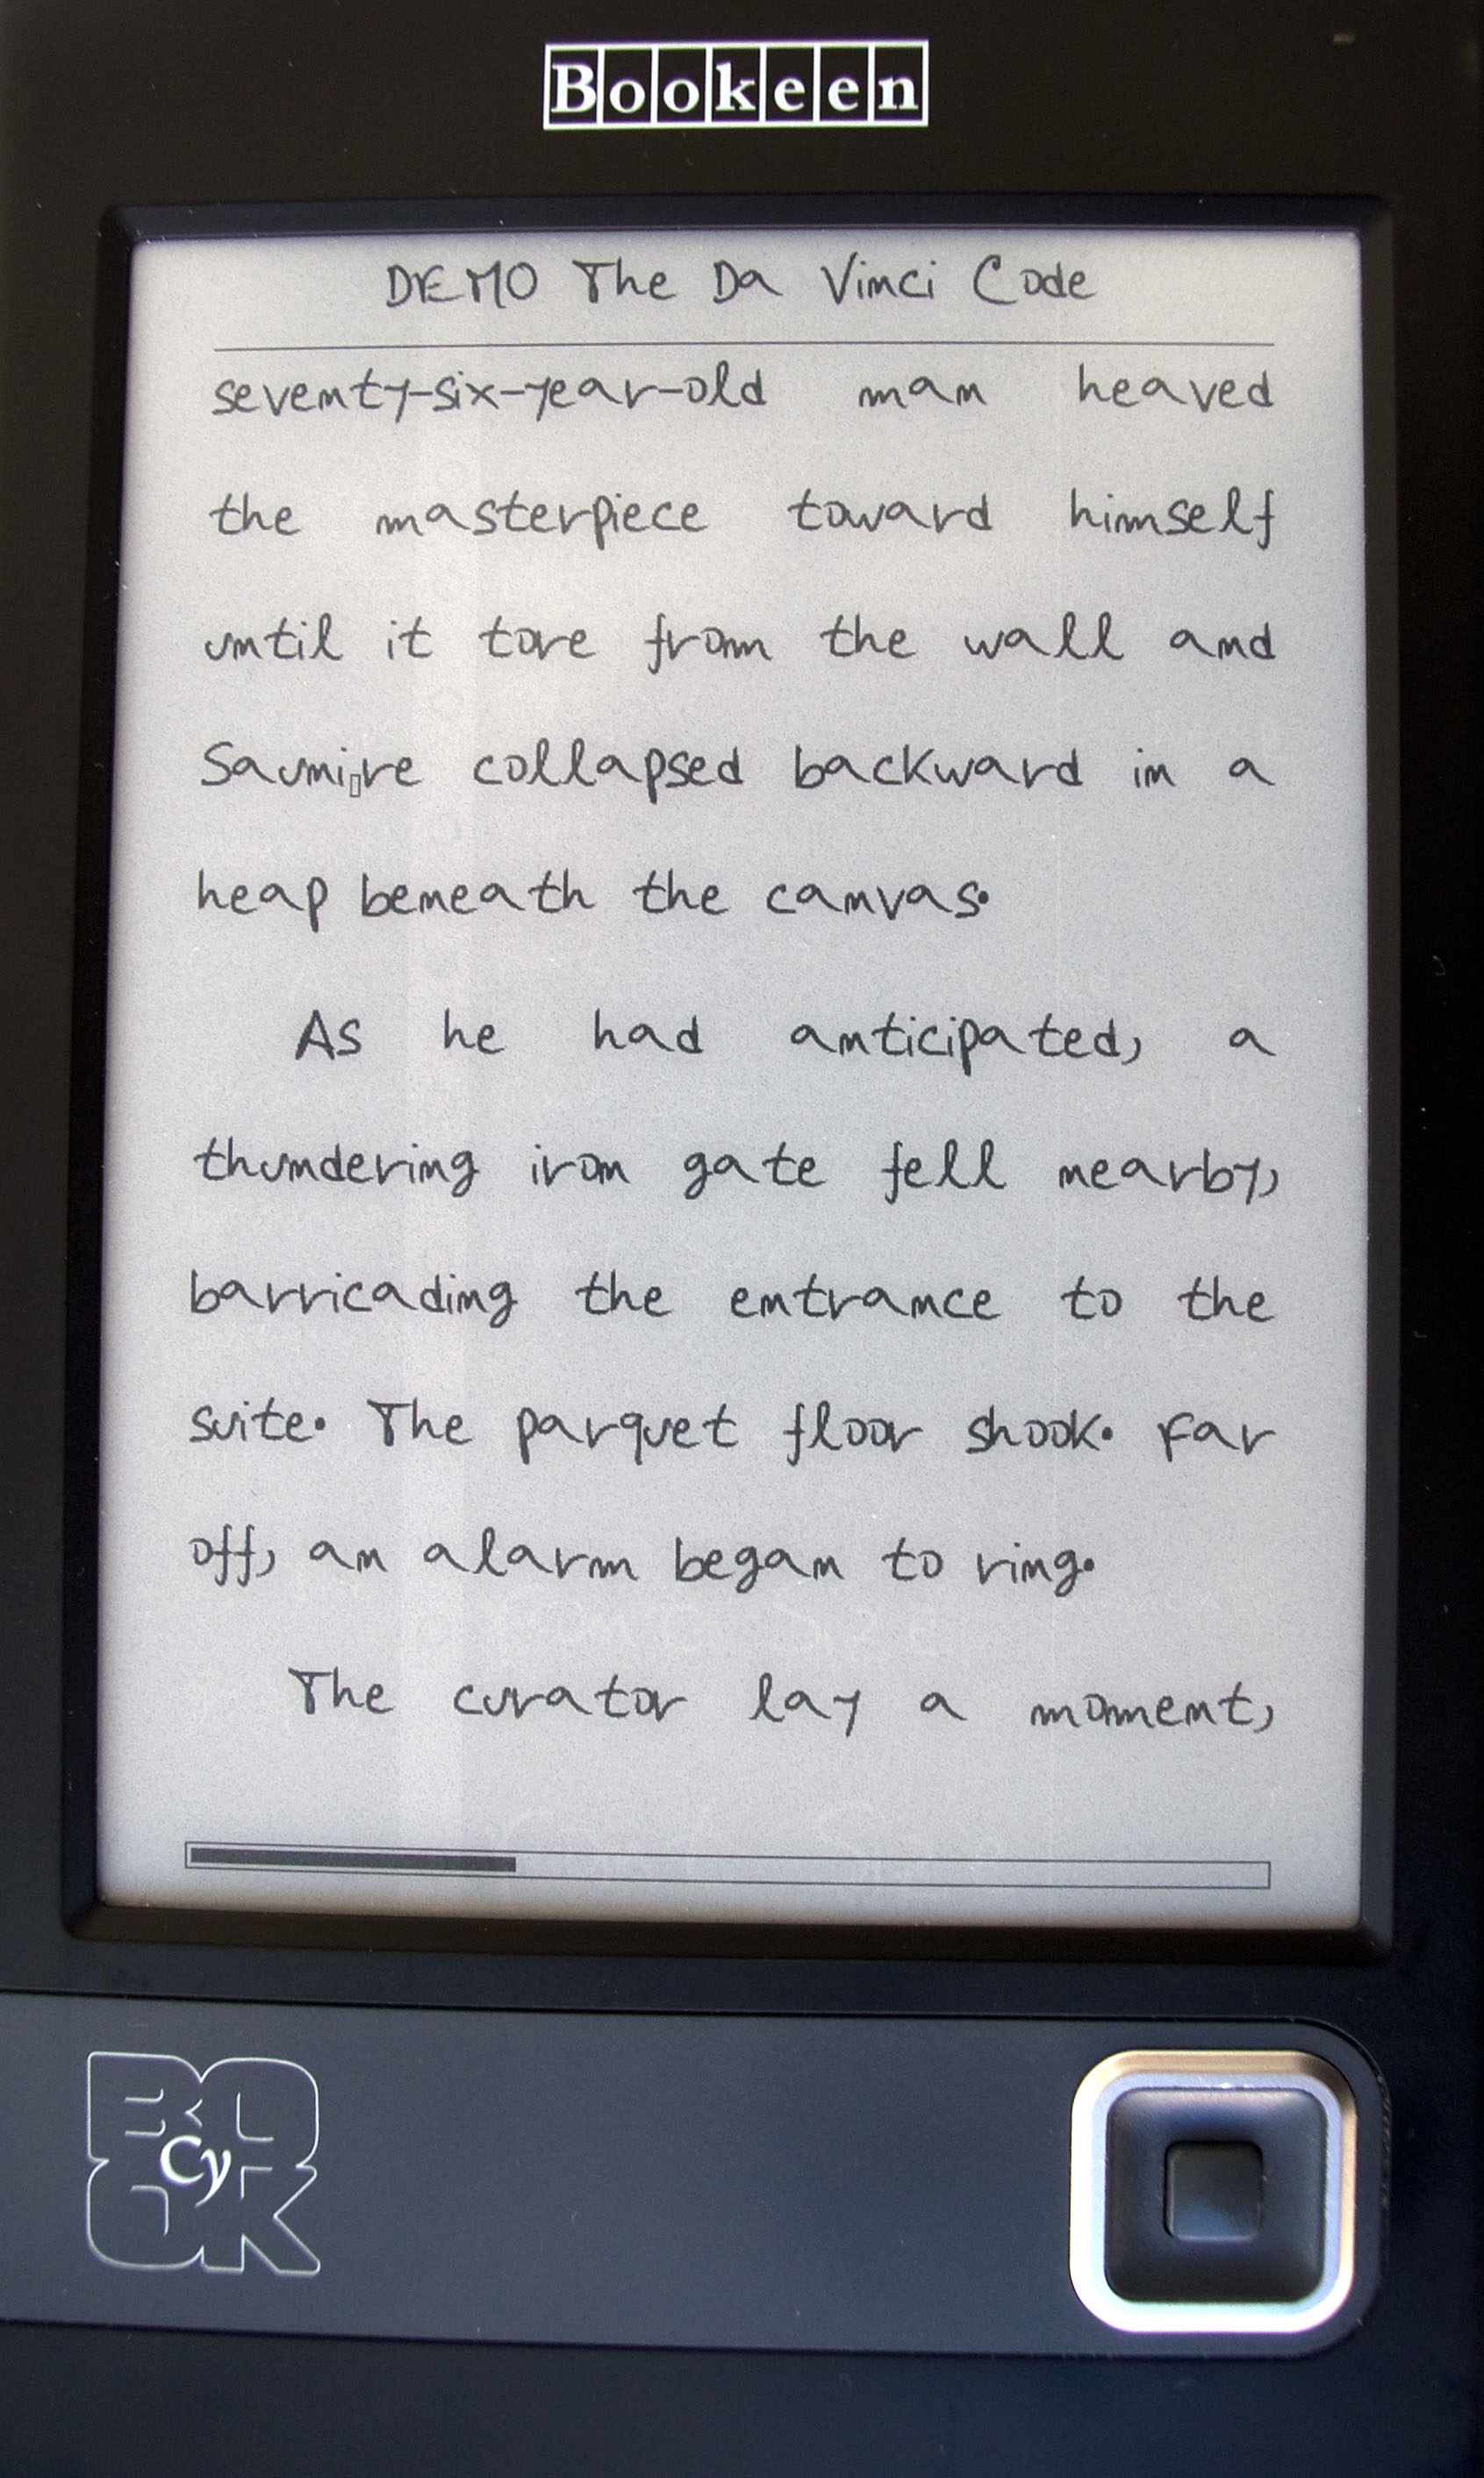 Bookeen
DEMO The Da Vinci Code
seventy-six-year-old man heaved
the masterpiece toward himself
until it tore from the wall and
Sauni▯re collapsed backward in a
heap beneath the canvas.
As he had anticipated, a
thundering iron gate fell nearby,
barricading the entrance to the
suite. The parquet floor shook. Far
off, an alarm began to ring.
The curator lay a moment,
BO
Cy
OK